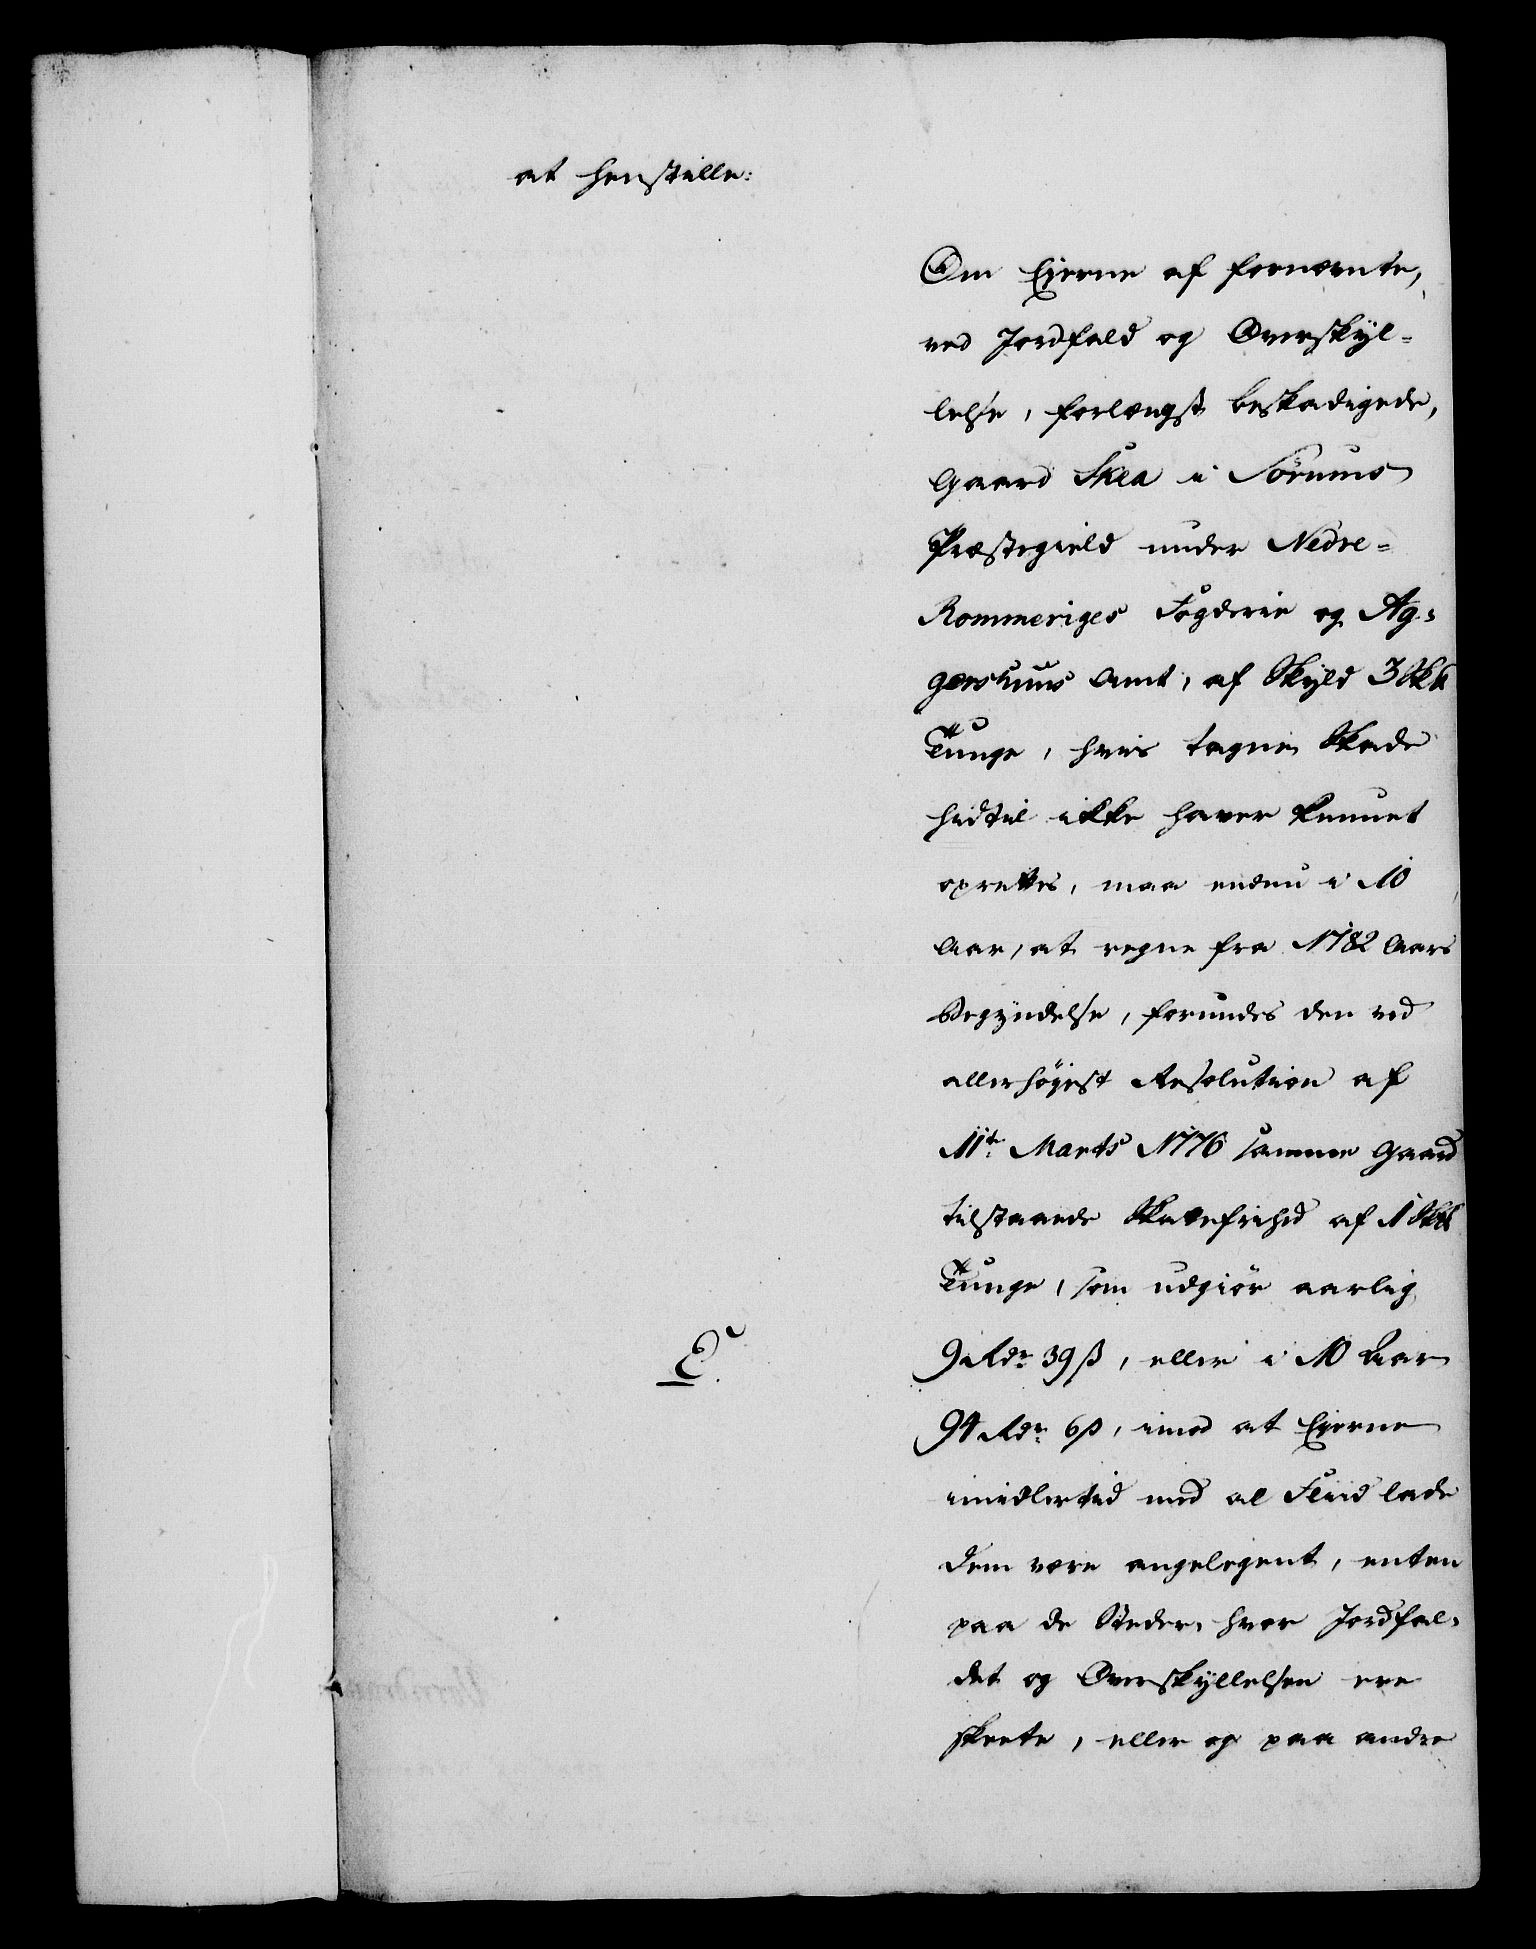 at henstille:
Om Eierne af fornævnte,
ved Jordfald og Overskyl-
lelse, forlængst beskadigede,
Gaard Skea i Sørums
Præstegield under Nedre-
Rommeriges Fogderie og Ag-
gershuus Amt, af Skyld 3 Sk℔
Tunge, hvis tagne Skade
hidtil ikke haver kunnet
oprettes, maa endnu i 10
Aar, at regne fra 1782 Aars
Begyndelse, forundes den ved
allerhøiest Resolution af
11te Marts 1776 samme Gaard
tilstaaede Skattefrihed af 1 Sk℔
Tunge, som udgiør aarlig
9 Rdr 39 ß, eller i 10 Aar
94 Rdr 6 ß, imod at Eierne
imidlertid med al Fliid lade
dem være angelegent, enten
paa de Steder, hvor Jordfal-
det og Overskyllelsen ere
skeete, eller og paa andre